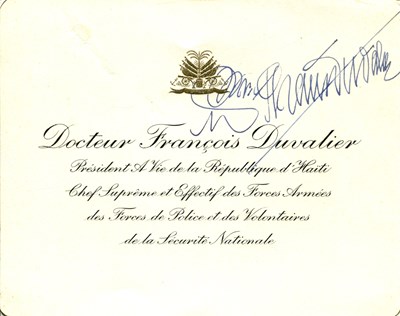 Docteur François Duvalier
Président A Vie de la République d'Haïti
Chef Suprême et Effectif des Forces Armées
des Forces de Police et des Volontaires
de la Sécurité Nationale